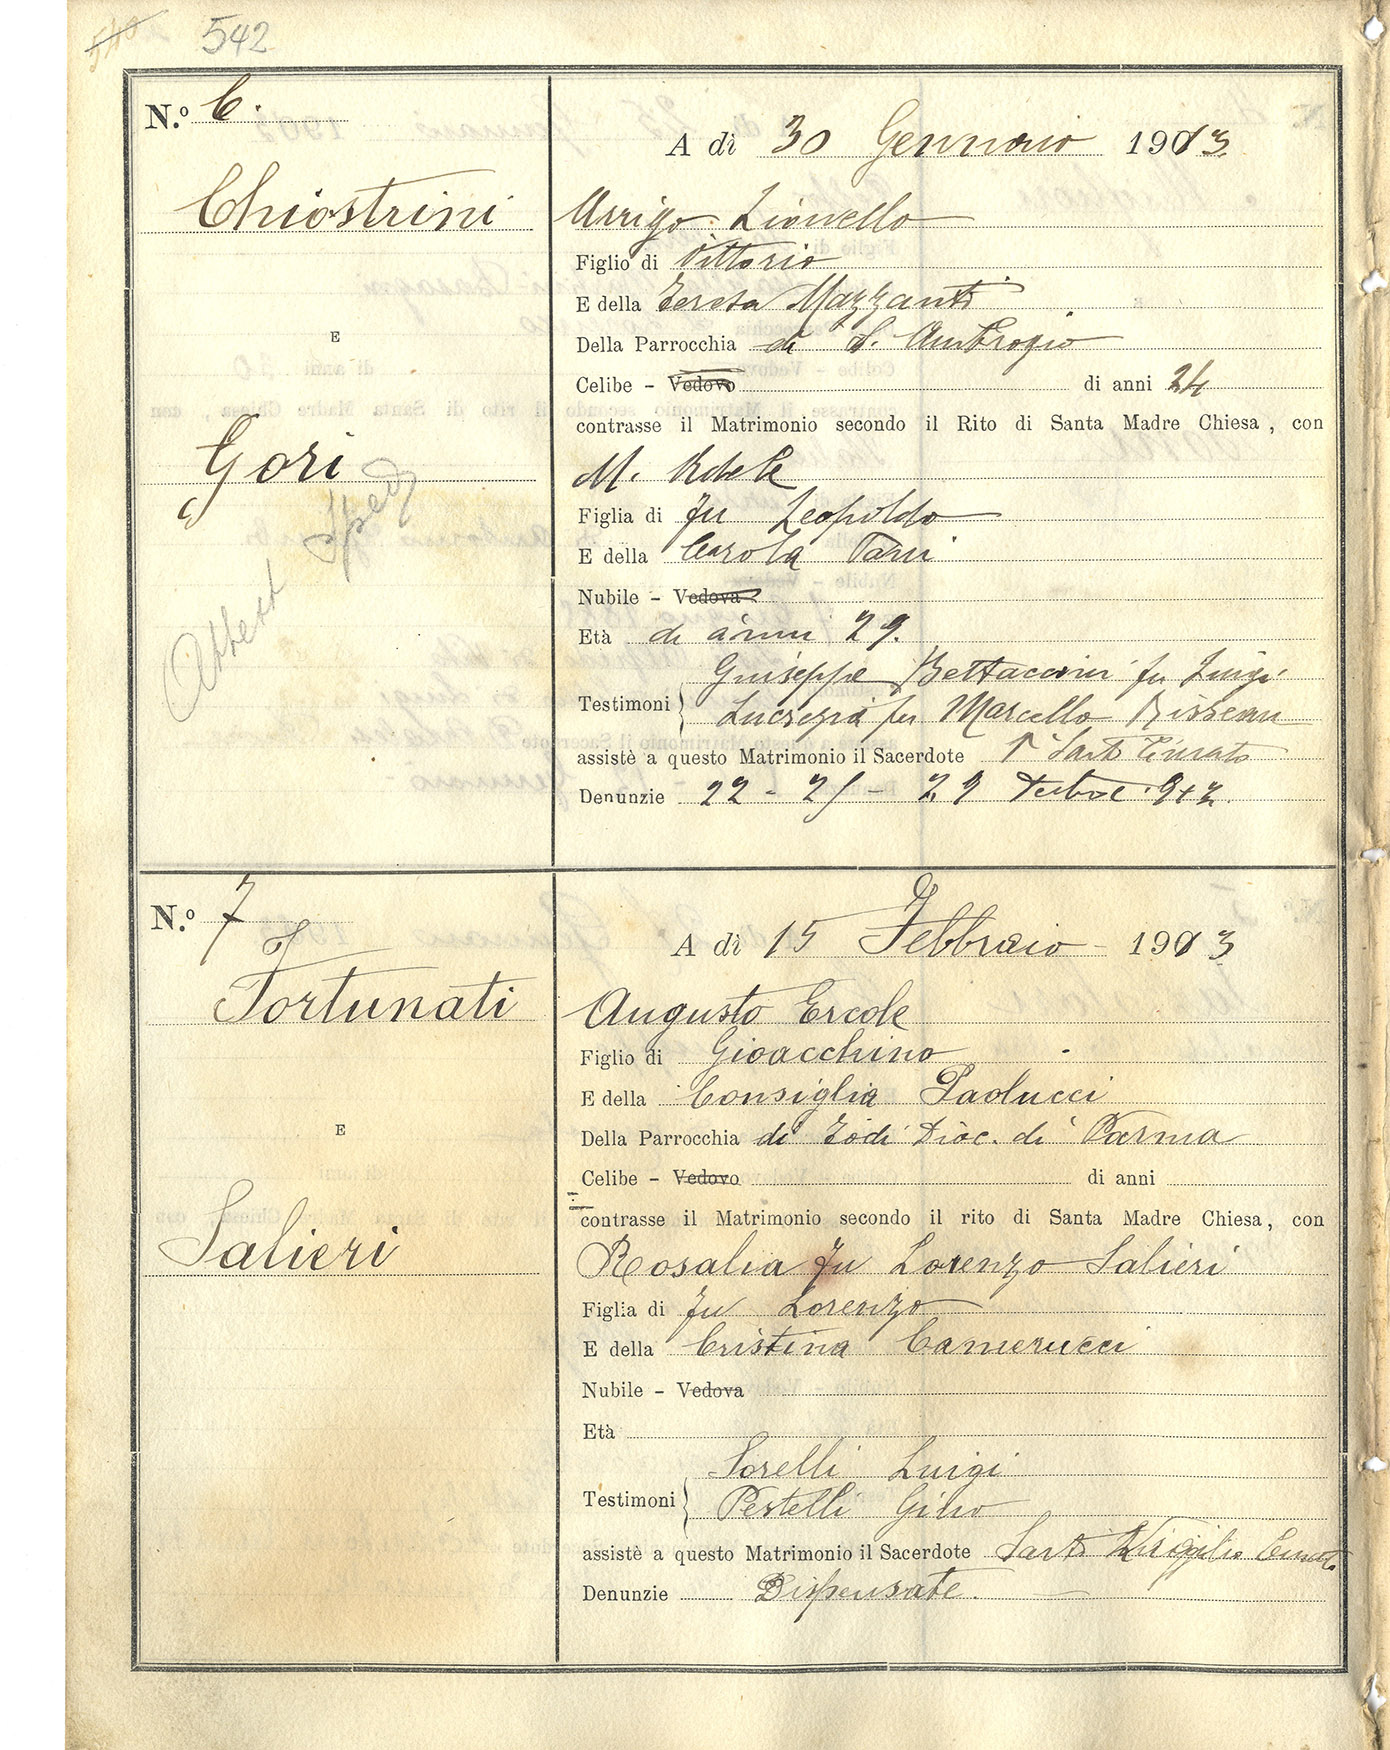 542
N.º 6.
Chiostrini
E
Gori
A dì 30 Gennaio 1913
Arrigo Lionello
Figlio di Vittorio
E della Teresa Mazzanti
Della Parrocchia di S. Ambrogio
Celibe - Vedovo di anni 24
contrasse il Matrimonio secondo il Rito di Santa Madre Chiesa, con
M. Adele
Figlia di fu Leopoldo
E della Carola Tani
Nubile - Vedova
Età di anni 29.
Testimoni Giuseppe Bettaccini fu Luigi
Lucrezia fu Marcello
assistè a questo Matrimonio il Sacerdote Sarti Curato
Denunzie 22 - 25 - 29
N.º 7
Fortunati
E
Salieri
A dì 15 Febbraio 1913
Augusto Ercole
Figlio di Gioacchino
E della Consiglia Paolucci
Della Parrocchia di Todi Dioc. di Parma
Celibe - Vedovo di anni
contrasse il Matrimonio secondo il rito di Santa Madre Chiesa, con
Rosalia fu Lorenzo Salieri
Figlia di fu Lorenzo
E della Cristina Camerucci
Nubile - Vedova
Età
Testimoni Sorelli Luigi
Pestelli Gino
assistè a questo Matrimonio il Sacerdote Sarti Virgilio Curato
Denunzie Dispensate.